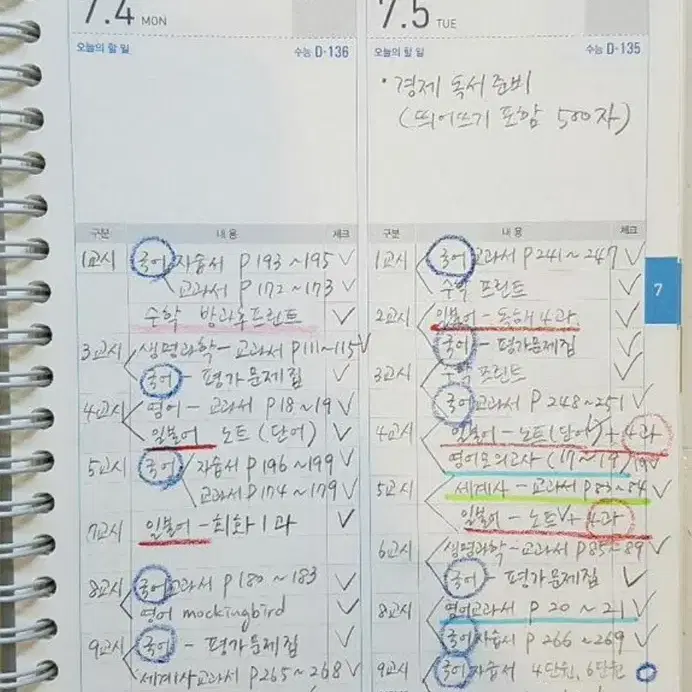 7.4 MON
오늘의 할 일 수능 D-136
구분 내용 체크
1교시 국어 자습서 P 193 ~195 ✓
교과서 P 172 ~ 173 ✓
수학 방과후프린트 ✓
3교시 생명과학 - 교과서 P111~115 ✓
국어 - 평가문제집 ✓
4교시 영어 - 교과서 P 18 ~ 19 ✓
일본어 노트 (단어) ✓
5교시 국어 자습서 P 196 ~199 ✓
교과서 P 174 ~ 179 ✓
7교시 일본어 - 회화 1과 ✓
8교시 국어교과서 P 180 ~ 183 ✓
영어 mockingbird ✓
9교시 국어 - 평가문제집 ✓
세계사교과서 P 265 ~ 268 ✓
7.5 TUE
오늘의 할 일 수능 D-135
· 경제 독서 준비
(띄어쓰기 포함 500자)
구분 내용 체크
1교시 국어교과서 P 241 ~ 247 ✓
수학 프린트 ✓
2교시 일본어 - 독해 4과 ✓
국어 - 평가문제집 ✓
3교시 수학 프린트 ✓
국어교과서 P 248 ~ 251 ✓
4교시 일본어 - 노트(단어) + 4과 ✓
영어모의고사 (17 ~ 19) 19 ✓
5교시 세계사 - 교과서 P 83~84 ✓
일본어 - 노트 ✓ + 4과 ✓
6교시 생명과학 - 교과서 P 85 ~ 89 ✓
국어 - 평가문제집 ✓
8교시 영어교과서 P 20 ~ 21 ✓
국어자습서 P 266 ~ 269 ✓
9교시 국어자습서 4단원, 6단원
7